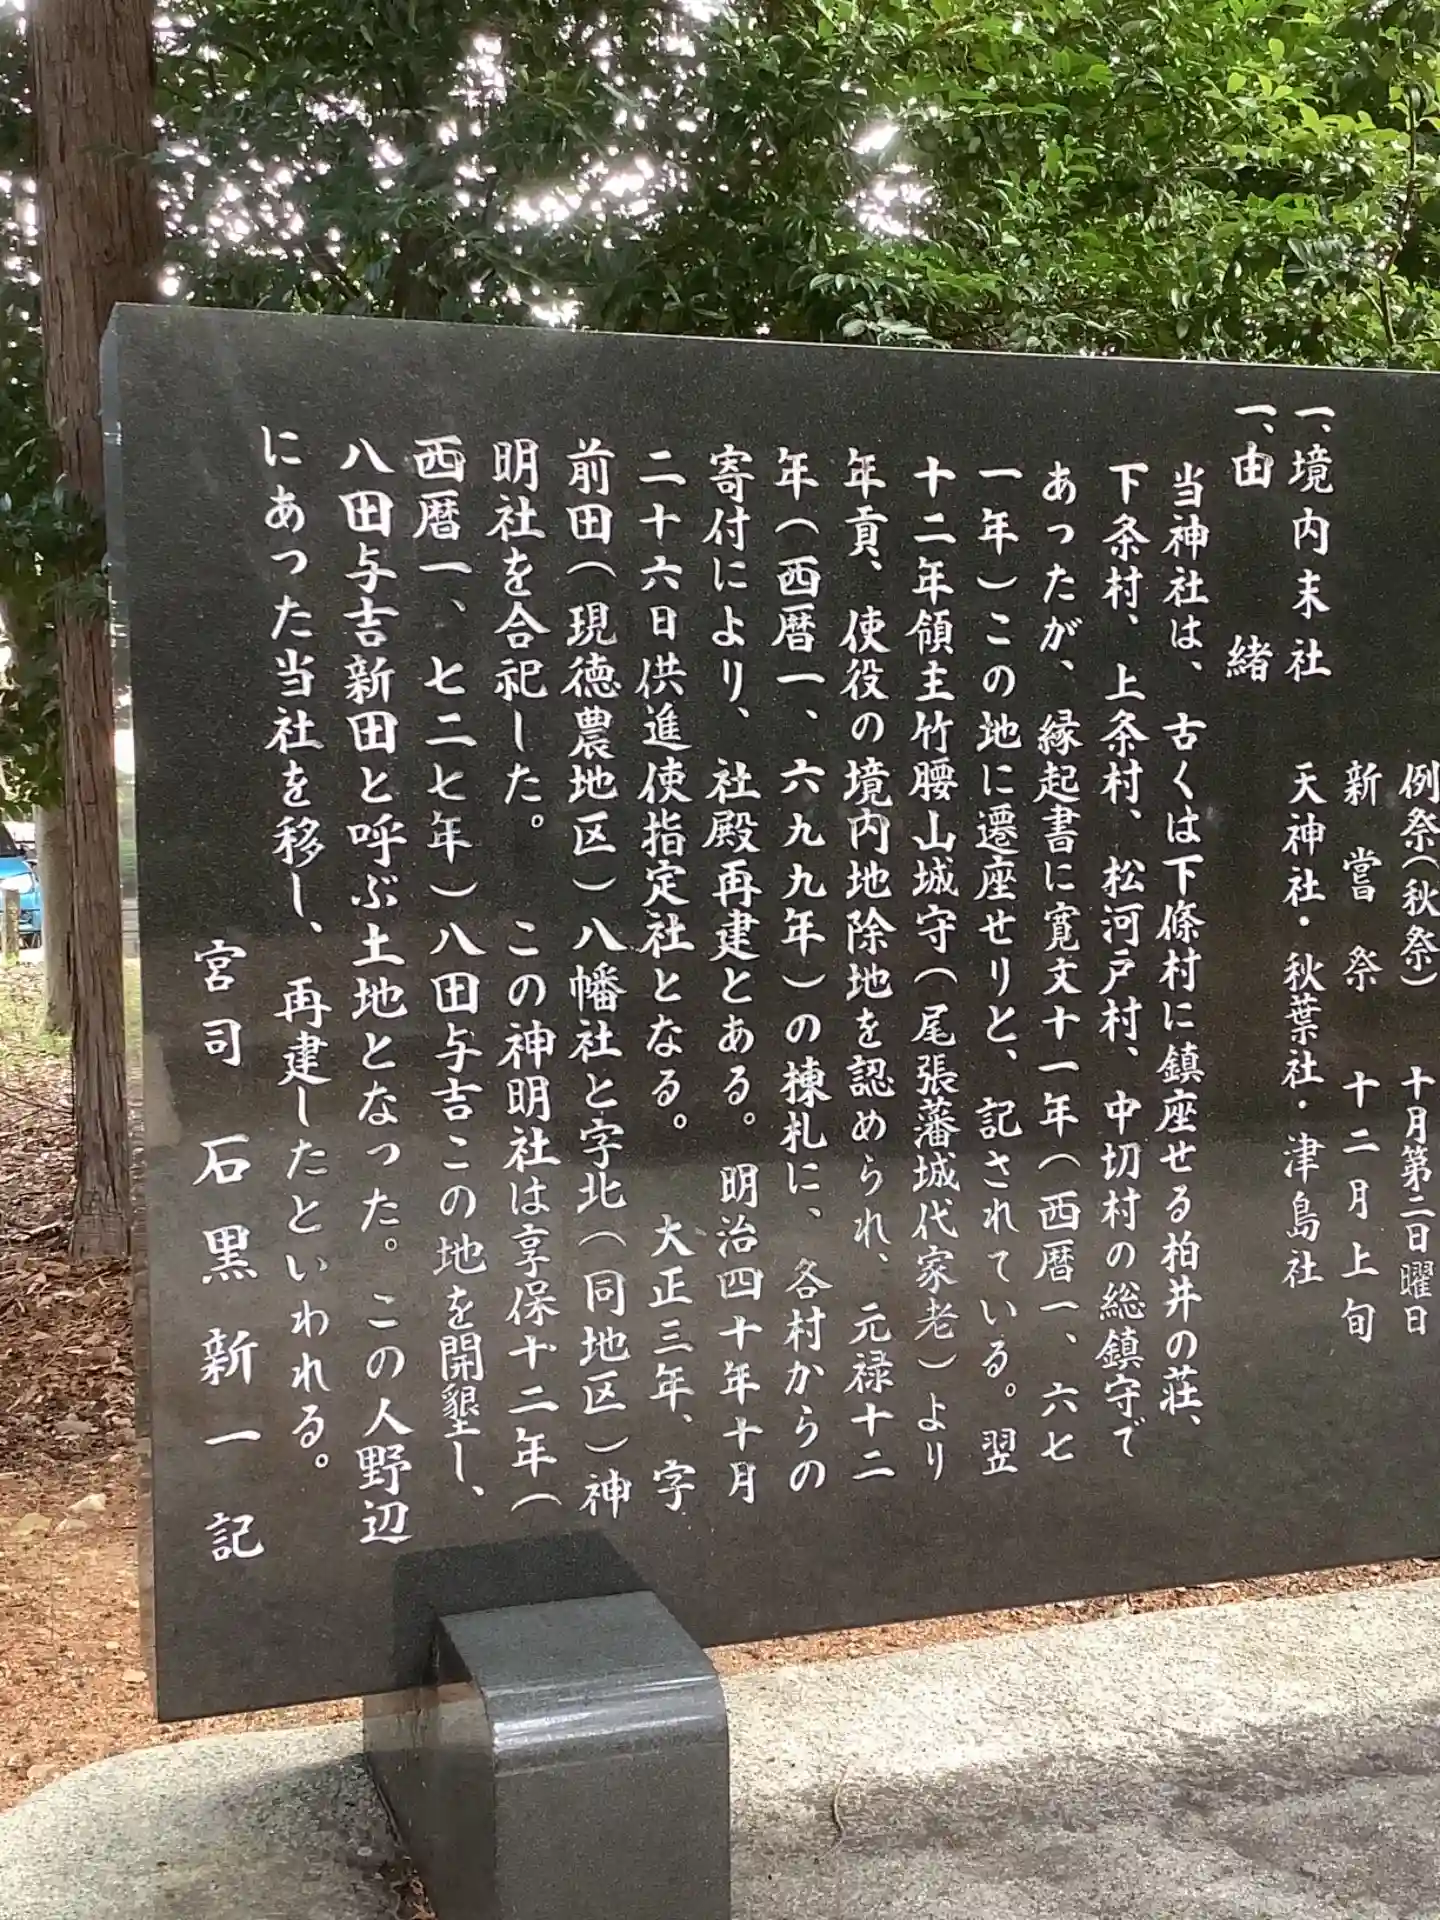 例祭(秋祭) 十月第二日曜日
新嘗祭 十二月上旬
一、境内末社 天神社・秋葉社・津島社
一、由緒
当神社は、古くは下條村に鎮座せる柏井の荘、
下条村、上条村、松河戸村、中切村の総鎮守で
あったが、縁起書に寛文十一年(西暦一、六七
一年)この地に遷座せりと、記されている。翌
十二年領主竹腰山城守(尾張藩城代家老)より
年貢、使役の境内地除地を認められ、元禄十二
年(西暦一、六九九年)の棟札に、各村からの
寄付により、社殿再建とある。明治四十年十月
二十六日供進使指定社となる。 大正三年、字
前田(現徳農地区)八幡社と字北(同地区)神
明社を合祀した。 この神明社は享保十二年(
西暦一、七二七年)八田与吉この地を開墾し、
八田与吉新田と呼ぶ土地となった。この人野辺
にあった当社を移し、再建したといわれる。
宮司 石黒新一 記